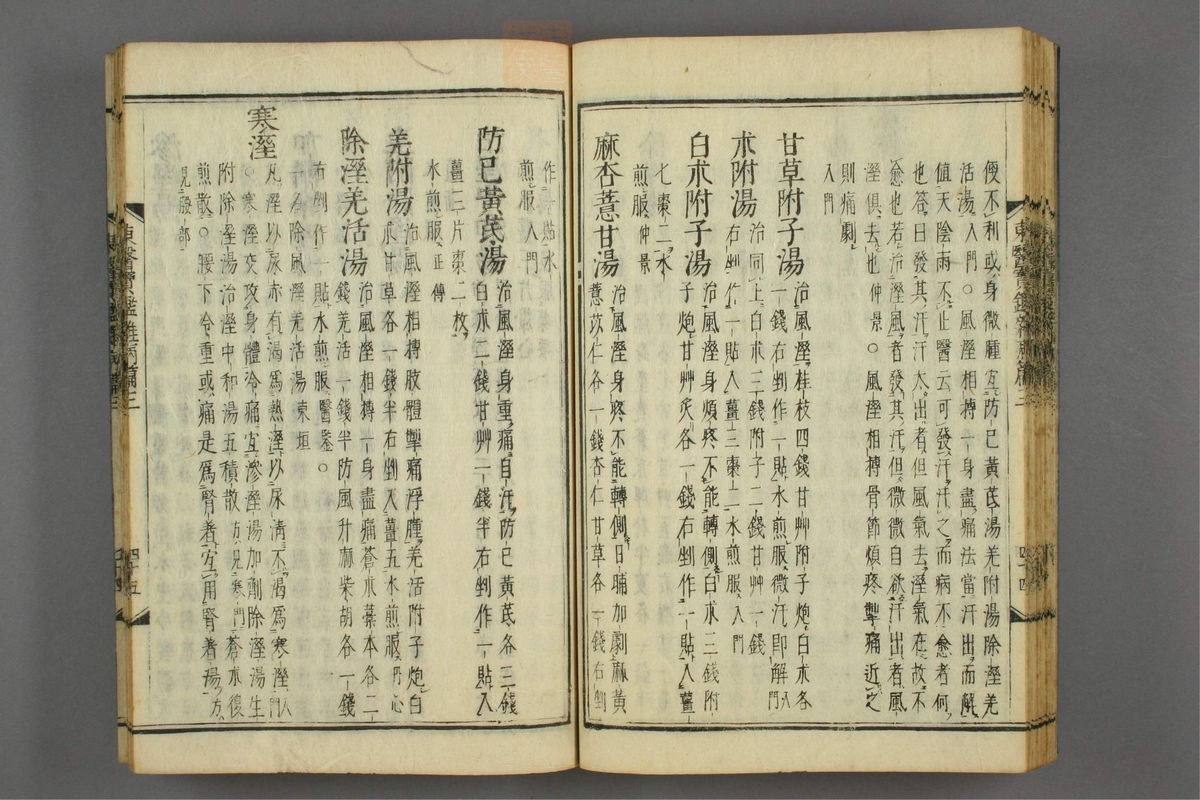 便不利或身微腫宜防已黃芪湯羌附湯除溼羌
活湯入門○風溼相搏一身盡痛法當汗出而解
值天陰雨不止醫云可發汗汗之而病不愈者何
也答曰發其汗汗大出者但風氣去溼氣在故不
愈也若治風溼者發其汗但微微自欲汗出者風
溼俱去也仲景○風溼相搏骨節煩疼掣痛近之
則痛劇
入門
甘草附子湯治風溼桂枝四錢甘艸附子炮白朮各
一錢右剉作一貼水煎服微汗即解入門
朮附湯治同上白朮三錢附子二錢甘艸一錢
右剉作一貼入薑三棗二水煎服入門
白朮附子湯治風溼身煩疼不能轉側白朮三錢附
子炮甘艸炙各一錢右剉作一貼入薑
七棗二水
煎服仲景
麻杏薏甘湯治風溼身疼不能轉側日晡加劇麻黃
薏苡仁各一錢杏仁甘草各一錢右剉
作一貼水
煎服入門
防已黃芪湯治風溼身重痛自汗防已黃芪各三錢
白朮二錢甘艸一錢半右剉作一貼入
薑三片棗二枚
水煎服正傳
羌附湯治風溼相搏肢體掣痛浮腫羌活附子炮白
朮甘草各一錢半右剉入薑五水煎服丹心
除溼羌活湯治風溼相搏一身盡痛蒼朮藁本各二
錢羌活一錢半防風升麻柴胡各一錢
右剉作一貼水煎服醫鑒○
一名除風溼羌活湯東垣
寒溼凡溼以尿赤有渴爲熱溼以尿清不渴爲寒溼入門
○寒溼交攻身體冷痛宜滲溼湯加劑除溼湯生
附除溼湯治溼中和湯五積散方見寒門蒼朮復
煎散○腰下冷重或痛是爲腎着宜用腎着湯方
見腰部
東醫寶鑑雜病篇三
四十四
東醫寶鑑雜病篇三
四十五